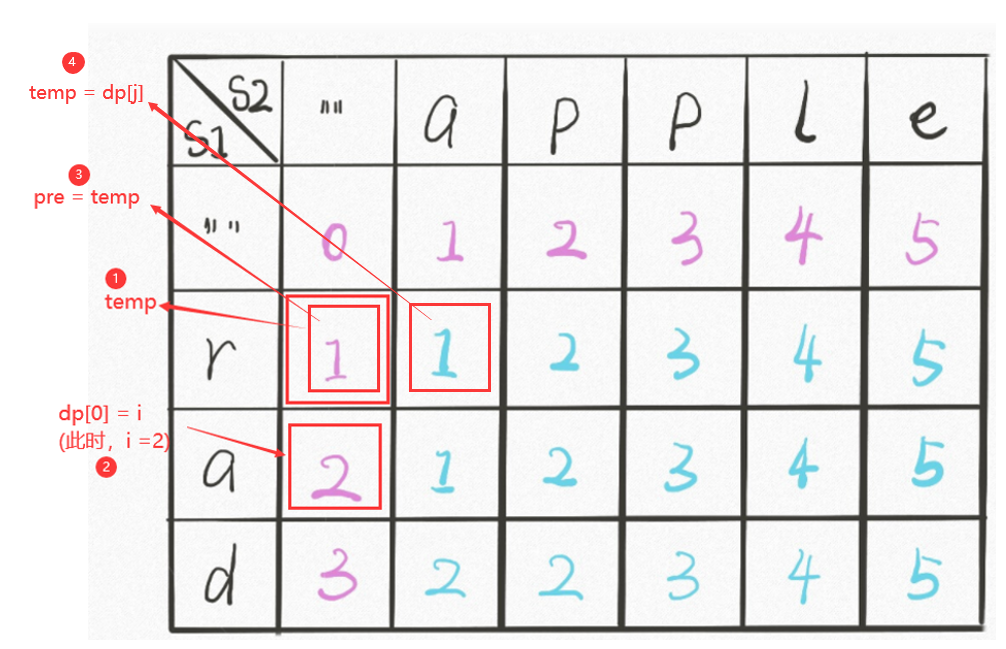 4
temp = dp[j]
3
pre = temp
1
temp
dp[0] = i
(此时，i =2)
2
S2
S1
"" a p p l e
"" 0 1 2 3 4 5
r 1 1 2 3 4 5
a 2 1 2 3 4 5
d 3 2 2 3 4 5